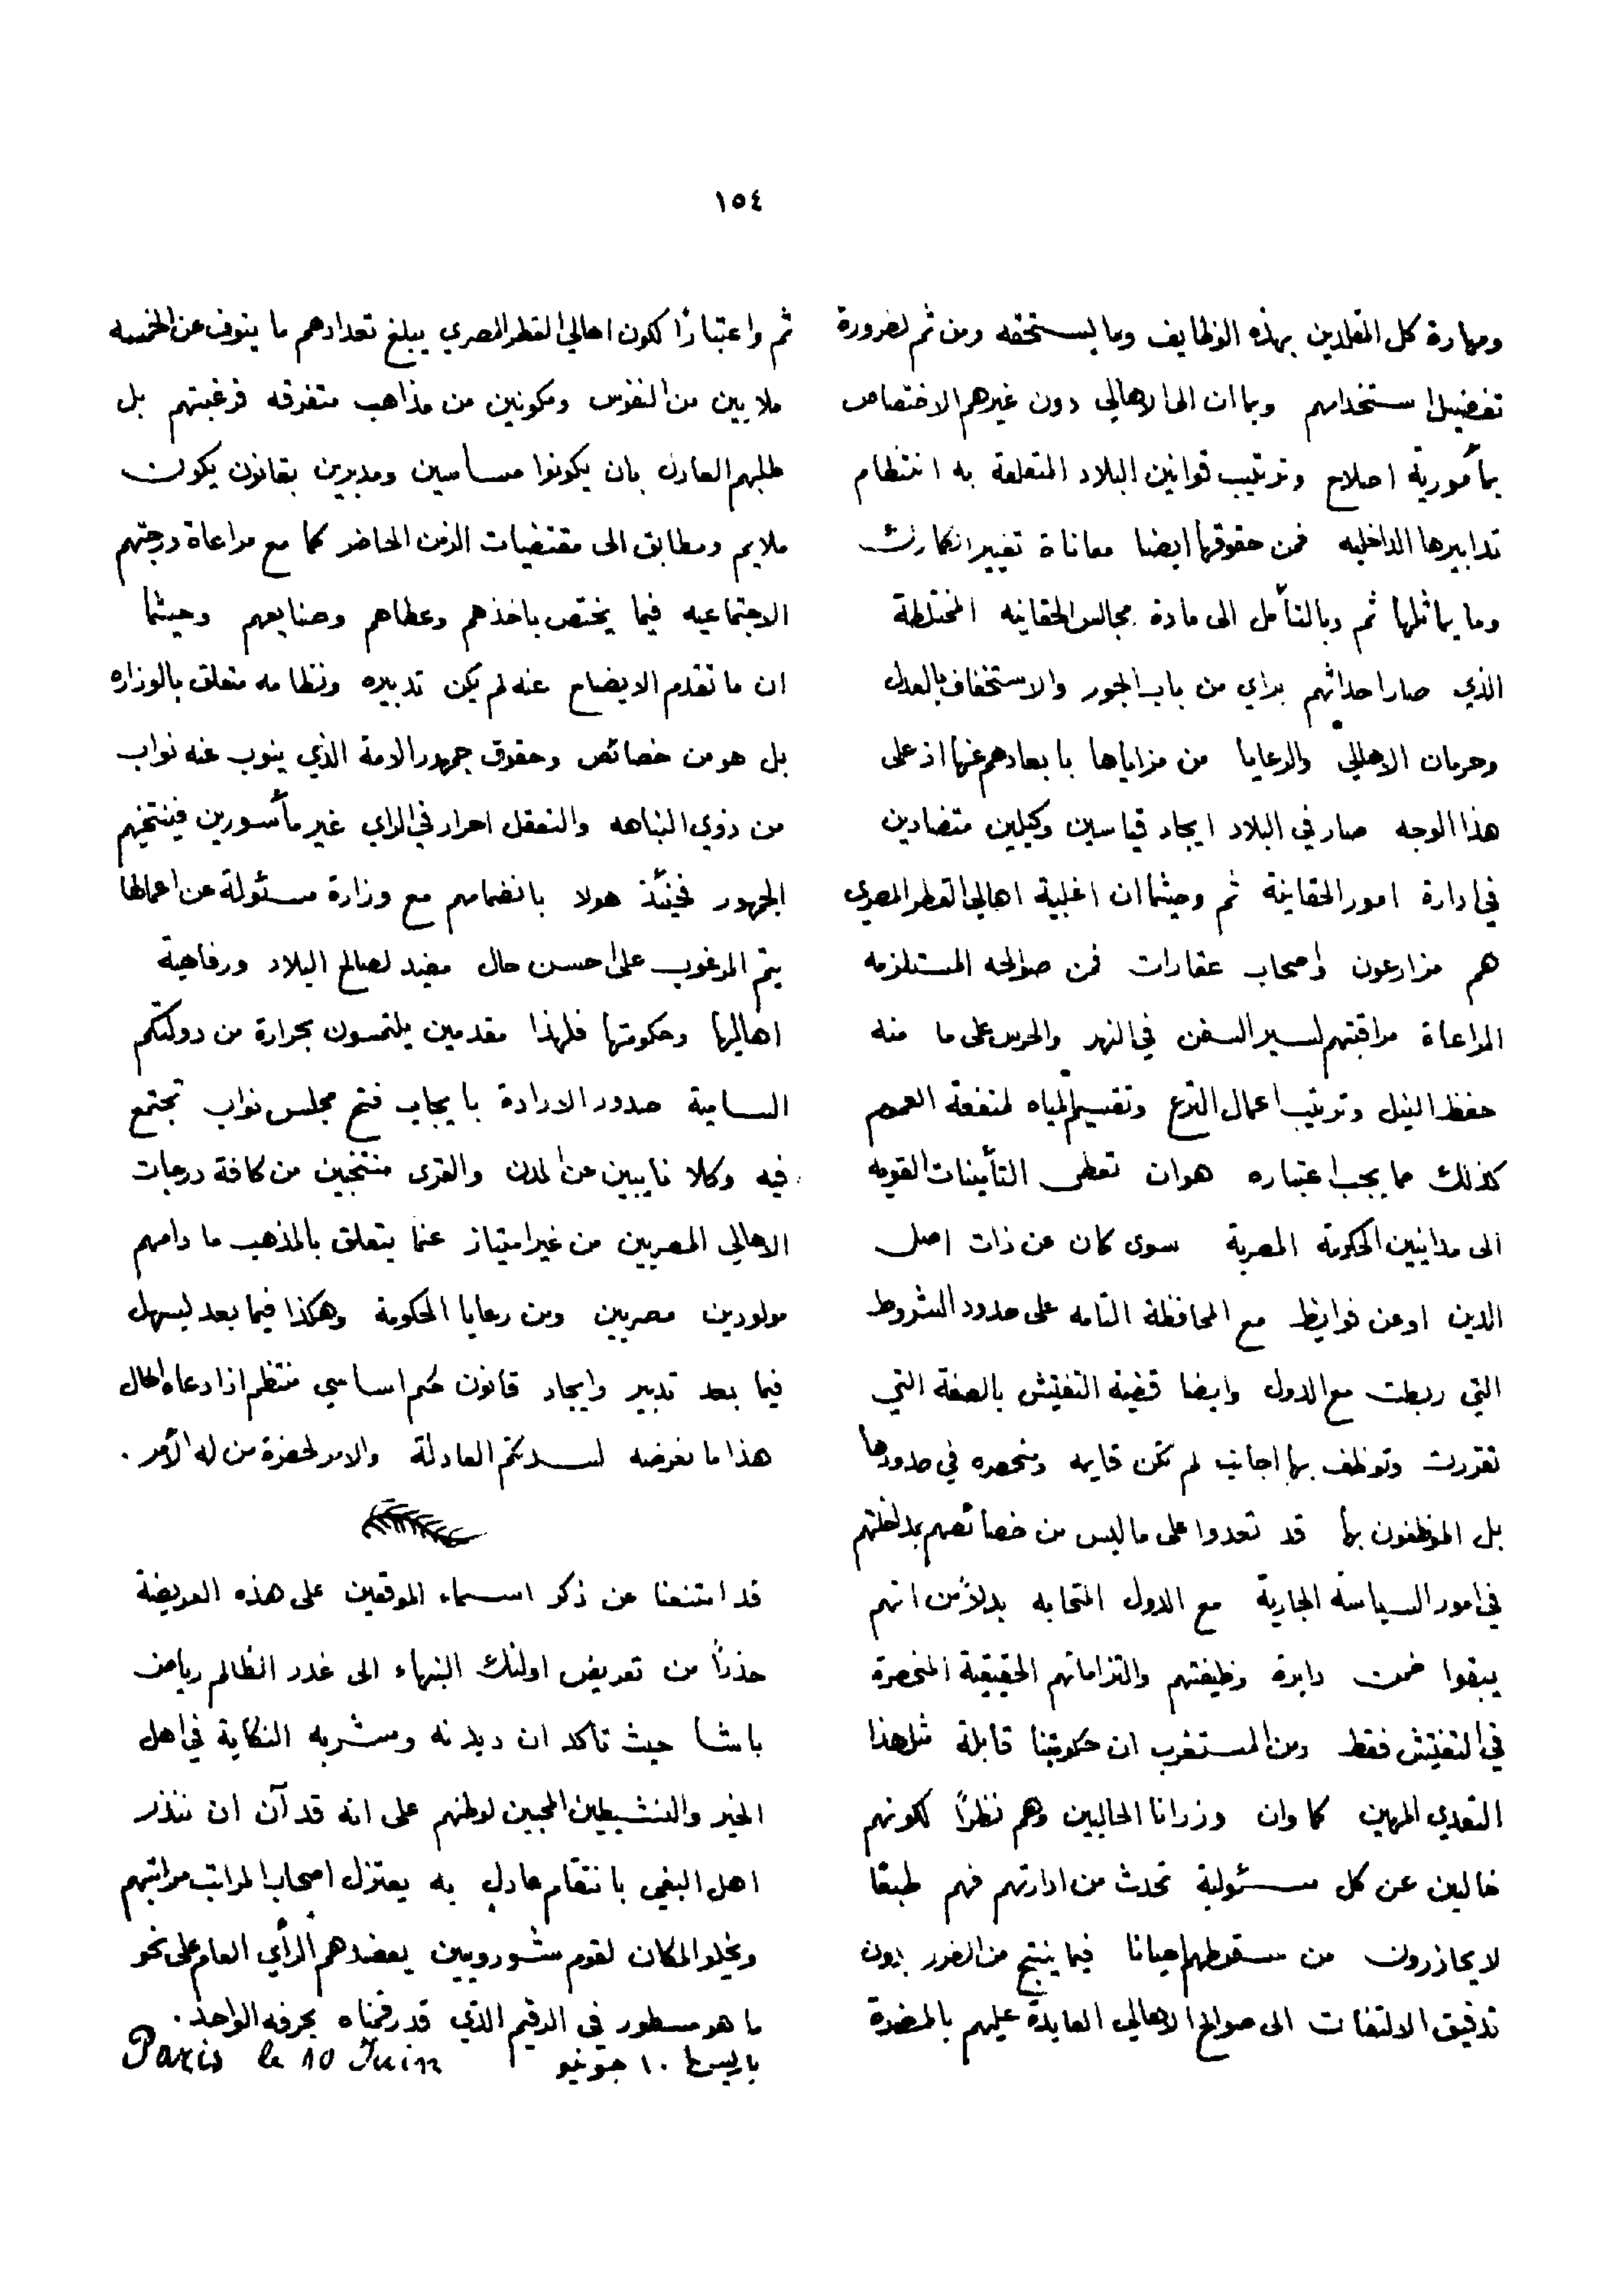 ١٥٤
ومهارة كل المقلدين بهذه الوظايف وما يستحقه ومن ثم لضرورة
تفضيل استخدامهم وبما ان الى الاهالي دون غيرهم الاختصاص
بمأمورية اصلاح وترتيب قوانين البلاد المتعلقة به انتظام
تدابيرها الداخليه فمن حقوقها ايضا معاناة تغيير الكمارك
وما يماثلها ثم وبالتأمل الى مادة مجالس الحقانيه المختلطة
الذي صار احداثهم براي من باب الجور والاستخفاف بالعدل
وحرمان الاهالي والرعايا من مزاياها بابعادهم عنها اذ على
هذا الوجه صار في البلاد ايجاد قياسين وكيلين متضادين
في ادارة امور الحقانية ثم وحيثما ان اغلبية اهالي القطر المصري
هم مزارعون واصحاب عقارات فمن صوالحه المستلزمه
المراعاة مراقبتهم لسير السفن في النهر والحرس على ما منه
حفظ النيل وترتيب اعمال الترع وتقسيم المياه لمنفعة العموم
كذلك مما يجب اعتباره هو ان تعطى التأمينات القويه
الى مداينين الحكومة المصرية سوى كان عن ذات اصل
الدين او عن فوايظ مع المحافظة التامه على حدود الشروط
التي ربطت مع الدول وايضا قضية التفتيش بالصفة التي
تقررت وتوظف بها اجانب لم تكن قايمه ومنحصره في حدودها
بل الموظفون بها قد تعدوا على ما ليس من خصائصهم بمداخلتهم
في امور السياسة الجارية مع الدول المتحابه بدلاً من انهم
يبقوا ضمن دايرة وظيفتهم والتزاماتهم الحقيقية المنحصرة
في التفتيش فقط ومن المستغرب ان حكومتنا قابلة مثل هذا
التعدي المهين كما وان وزرانا الحاليين وهم نظراً لكونهم
خالين عن كل مسئولية تحدث من ادارتهم فهم طبعا
لا يحاذرون من سقوطهم احيانا فيما ينتج من الضرر بدون
تدقيق الالتفات الى صوالح الاهالي العايدة عليهم بالمضرة
ثم واعتباراً لكون اهالي القطر المصري يبلغ تعدادهم ما ينوف عن الخمسه
ملايين من النفوس ومكونين من مذاهب متفرقه فرغبتهم بل
طلبهم العادل بان يكونوا مساسين ومدبرين بقانون يكون
ملايم ومطابق الى مقتضيات الزمن الحاضر كما مع مراعاة درجتهم
الاجتماعيه فيما يختص باخذهم وعطاهم وصنايعهم وحيثما
ان ما تقدم الايضاح عنه لم يكن تدبيره ونظامه متعلق بالوزاره
بل هو من خصائص وحقوق جمهور الامة الذي ينوب عنه نواب
من ذوي النباهه والتعقل احرار في الراي غير مأسورين فينتخبهم
الجمهور فحينئذ هولا بانضمامهم مع وزارة مسئولة عن اعمالها
يتم المرغوب على احسن حال مفيد لصالح البلاد ورفاهية
اهاليها وحكومتها فلهذا مقدمين يلتمسون بحرارة من دولتكم
السامية صدور الارادة بايجاب فتح مجلس نواب تجتمع
فيه وكلا نايبين عن المدن والقرى منتخبين من كافة درجات
الاهالي المصريين من غير امتياز عما يتعلق بالمذهب ما دامهم
مولودين مصريين ومن رعايا الحكومة وهكذا فيما بعد ليسهل
فيما بعد تدبير وايجاد قانون حكم اساسي منتظم اذا دعاه الحال
هذا ما نعرضه لسدتكم العادلة والامر لحضرة من له الأمر .
قد امتنعنا عن ذكر اسماء الموقعين على هذه العريضة
حذراً من تعريض اولئك النبهاء الى غدر الظالم رياض
باشا حيث تاكد ان ديدنه ومشربه النكاية في اهل
الخير والنشيطين المحبين لوطنهم على انه قد آن ان ننذر
اهل البغي بانتقام عادل به يعتزل اصحاب المراتب مراتبهم
ويخلو المكان لقوم شورويين يعضدهم الرأي العام على نحو
ما هو مسطور في الرقيم الذي قد رقمناه بحرفه الواحد .
باريس ١٠ جونيو Paris le 10 Juin